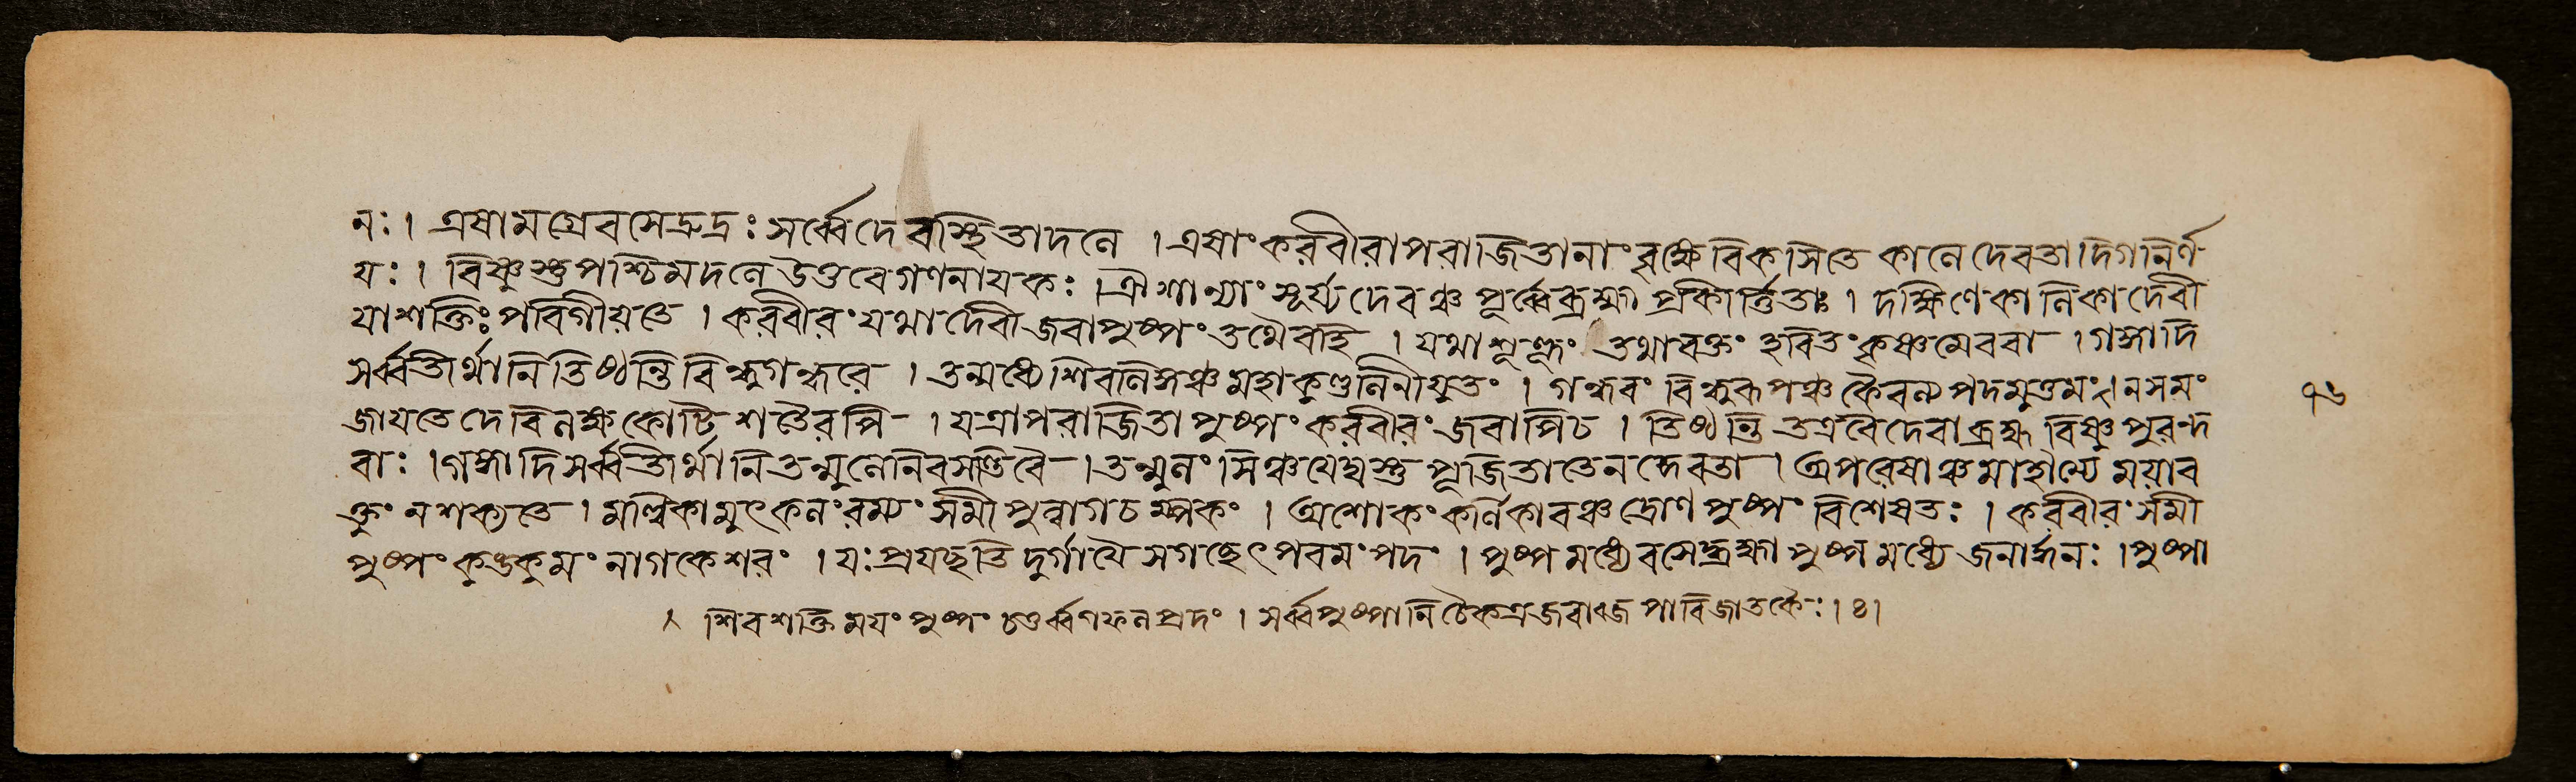 নঃ। এষামগ্রেবসেদ্রুদ্রঃ সর্ব্বেদেবাস্থিতাদলে । এষাংকরবীরাপরাজিতানাং বৃক্ষে বিকসিতে কালে দেবতাদিগনির্ণ
য়ঃ । বিষ্ণুস্তুপশ্চিমদলে উত্তরেগণনায়কঃ । ঐশান্যাং সূর্য্যদেবঞ্চ পূর্ব্বেব্রহ্মা প্রকীর্ত্তিতাঃ । দক্ষিণেকালিকাদেবী
যাশক্তিঃ পরিগীয়তে । করবীরং যথাদেবী জবাপুষ্পং তথৈবহি । যথাশুক্লং তথারক্তং হরিতং কৃষ্ণমেববা । গঙ্গাদি
সর্ব্বতীর্থানিতিষ্ঠন্তি বিন্ধুগহ্বরে । তন্মধ্যেশিবলিঙ্গঞ্চ মহাকুণ্ডলিনীযুতং । গহ্বরং বিন্ধুরূপঞ্চ কৈবল্য পদমুত্তমং । নসমং
জায়তে দেবিলক্ষকোটি শতৈরপি । যত্রাপরাজিতা পুষ্পং করবীরং জবাপিচ । তিষ্ঠন্তি তত্রবৈদেবা ব্রহ্ম বিষ্ণু পুরন্দ
রাঃ । গঙ্গাদিসর্ব্বতীর্থানি তন্মূলেনিবসন্তিবৈ । তন্মূলং সিঞ্চয়েদ্যস্তু পূজিতাতেন দেবতা । অপরেষাঞ্চমাহাত্ম্যং ময়াব
ক্তুং ন শক্যতে । মল্লিকামুৎফলংরম্যং সমীপুন্নাগচম্পকং । অশোকংকর্ণিকারঞ্চ দ্রোণপুষ্পং বিশেষতঃ । করবীরং সমী
পুষ্পং কুঙ্কুমং নাগকেশরং । যঃপ্রযচ্ছতি দুর্গায়ৈ সগচ্ছেৎ পরমংপদং । পুষ্পমধ্যেবসেদ্ব্রহ্মা পুষ্পমধ্যে জনার্দ্দনঃ । পুষ্পা
৭৬
শিবশক্তিময়ং পুষ্পং চতুর্ব্বর্গফলপ্রদং । সর্ব্বপুষ্পানি চৈকত্র জবাব্জ পারিজাতকৈঃ । ৪ ।